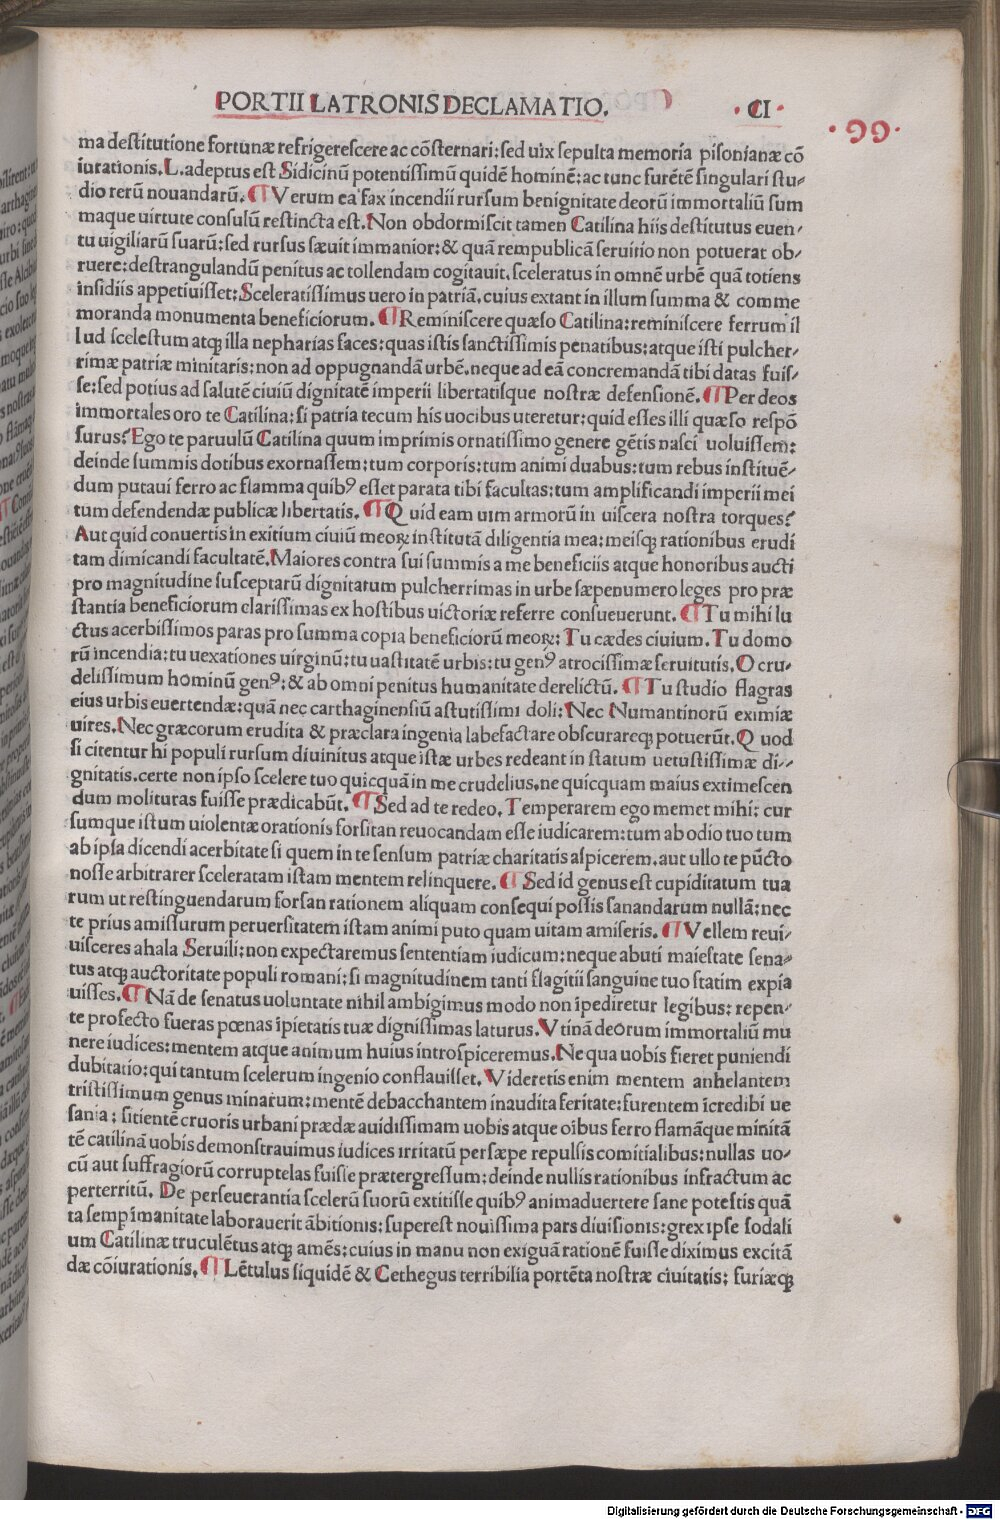 PORTII LATRONIS DECLAMATIO. · CI ·
· 99 ·
ma destitutione fortunæ refrigerescere ac cõsternari: sed uix sepulta memoria pisonianæ cõ
iurationis. L. adeptus est Sidicinũ potentissimũ quidẽ hominẽ: ac tunc furẽtẽ singulari stu-
dio rerũ nouandarũ. ¶ Verum ea fax incendii rursum benignitate deorũ immortaliũ sum
maque uirtute consulũ restincta est. Non obdormiscit tamen Catilina hiis destitutus euen-
tu uigiliarũ suarũ: sed rursus sæuit immanior: & quã rempublicã seruitio non potuerat ob-
ruere: destrangulandũ penitus ac tollendam cogitauit. sceleratus in omnẽ urbẽ quã totiens
insidiis appetiuisset: Sceleratissimus uero in patriã. cuius extant in illum summa & comme
moranda monumenta beneficiorum. ¶ Reminiscere quæso Catilina: reminiscere ferrum il
lud scelestum atqꝫ illa nepharias faces: quas istis sanctissimis penatibus: atque isti pulcher-
rimæ patriæ minitaris: non ad oppugnandã urbẽ. neque ad eã concremandã tibi datas fuis-
se: sed potius ad salutẽ ciuiũ dignitatẽ imperii libertatisque nostræ defensionẽ. ¶ Per deos
immortales oro te Catilina: si patria tecum his uocibus uteretur: quid esses illi quæso respõ
surus? Ego te paruulũ Catilina quum imprimis ornatissimo genere gẽtis nasci uoluissem:
deinde summis dotibus exornassem: tum corporis: tum animi duabus: tum rebus instituẽ-
dum putaui ferro ac flamma quibꝰ esset parata tibi facultas: tum amplificandi imperii mei
tum defendendæ publicæ libertatis. ¶ Quid eam uim armorũ in uiscera nostra torques?
Aut quid conuertis in exitium ciuiũ meoꝝ institutã diligentia mea: meisqꝫ rationibus erudi
tam dimicandi facultatẽ. Maiores contra sui summis a me beneficiis atque honoribus aucti
pro magnitudine susceptarũ dignitatum pulcherrimas in urbe sæpenumero leges pro præ
stantia beneficiorum clarissimas ex hostibus uictoriæ referre consueuerunt. ¶ Tu mihi lu
ctus acerbissimos paras pro summa copia beneficiorũ meoꝝ: Tu cædes ciuium. Tu domo
rũ incendia: tu uexationes uirginũ: tu uastitatẽ urbis: tu genꝰ atrocissimæ seruitutis. O cru-
delissimum hominũ genꝰ: & ab omni penitus humanitate derelictũ. ¶ Tu studio flagras
eius urbis euertendæ: quã nec carthaginensiũ astutissimi doli: Nec Numantinorũ eximiæ
uires. Nec græcorum erudita & præclara ingenia labefactare obscurareqꝫ potuerũt. Quod
si citentur hi populi rursum diuinitus atque istæ urbes redeant in statum uetustissimæ di-
gnitatis. certe non ipso scelere tuo quicquã in me crudelius. ne quicquam maius extimescen
dum molituras fuisse prædicabũt. ¶ Sed ad te redeo. Temperarem ego memet mihi: cur
sumque istum uiolentæ orationis forsitan reuocandam esse iudicarem: tum ab odio tuo tum
ab ipsa dicendi acerbitate si quem in te sensum patriæ charitatis aspicerem. aut ullo te pũcto
nosse arbitrarer sceleratam istam mentem relinquere. ¶ Sed id genus est cupiditatum tua
rum ut restinguendarum forsan rationem aliquam consequi possis sanandarum nullã: nec
te prius amissurum peruersitatem istam animi puto quam uitam amiseris. ¶ Vellem reui-
uisceres ahala Seruili: non expectaremus sententiam iudicum: neque abuti maiestate sena-
tus atqꝫ auctoritate populi romani: si magnitudinem tanti flagitii sanguine tuo statim expia
uisses. ¶ Nã de senatus uoluntate nihil ambigimus modo non ĩpediretur legibus: repen-
te profecto fueras pœnas ĩpietatis tuæ dignissimas laturus. Vtinã deorum immortaliũ mu
nere iudices: mentem atque animum huius introspiceremus. Ne qua uobis fieret puniendi
dubitatio: qui tantum scelerum ingenio conflauisset. Videretis enim mentem anhelantem
tristissimum genus minarum: mentẽ debacchantem inaudita feritate: furentem ĩcredibi ue
sania: sitientẽ cruoris urbani prædæ auidissimam uobis atque oĩbus ferro flamãque minitã
tẽ catilinã uobis demonstrauimus iudices irritatũ persæpe repulsis comitialibus: nullas uo-
cũ aut suffragiorũ corruptelas fuisse prætergressum: deinde nullis rationibus infractum ac
perterritũ. De perseuerantia scelerũ suorũ extitisse quibꝰ animaduertere sane potestis quã
ta semp ĩmanitate laborauerit ãbitionis: superest nouissima pars diuisionis: grex ipse sodali
um Catilinæ truculẽtus atqꝫ amẽs: cuius in manu non exiguã rationẽ fuisse diximus excitã
dæ cõiurationis. ¶ Lẽtulus siquidẽ & Cethegus terribilia portẽta nostræ ciuitatis: furiæqꝫ
Digitalisierung gefördert durch die Deutsche Forschungsgemeinschaft - DFG